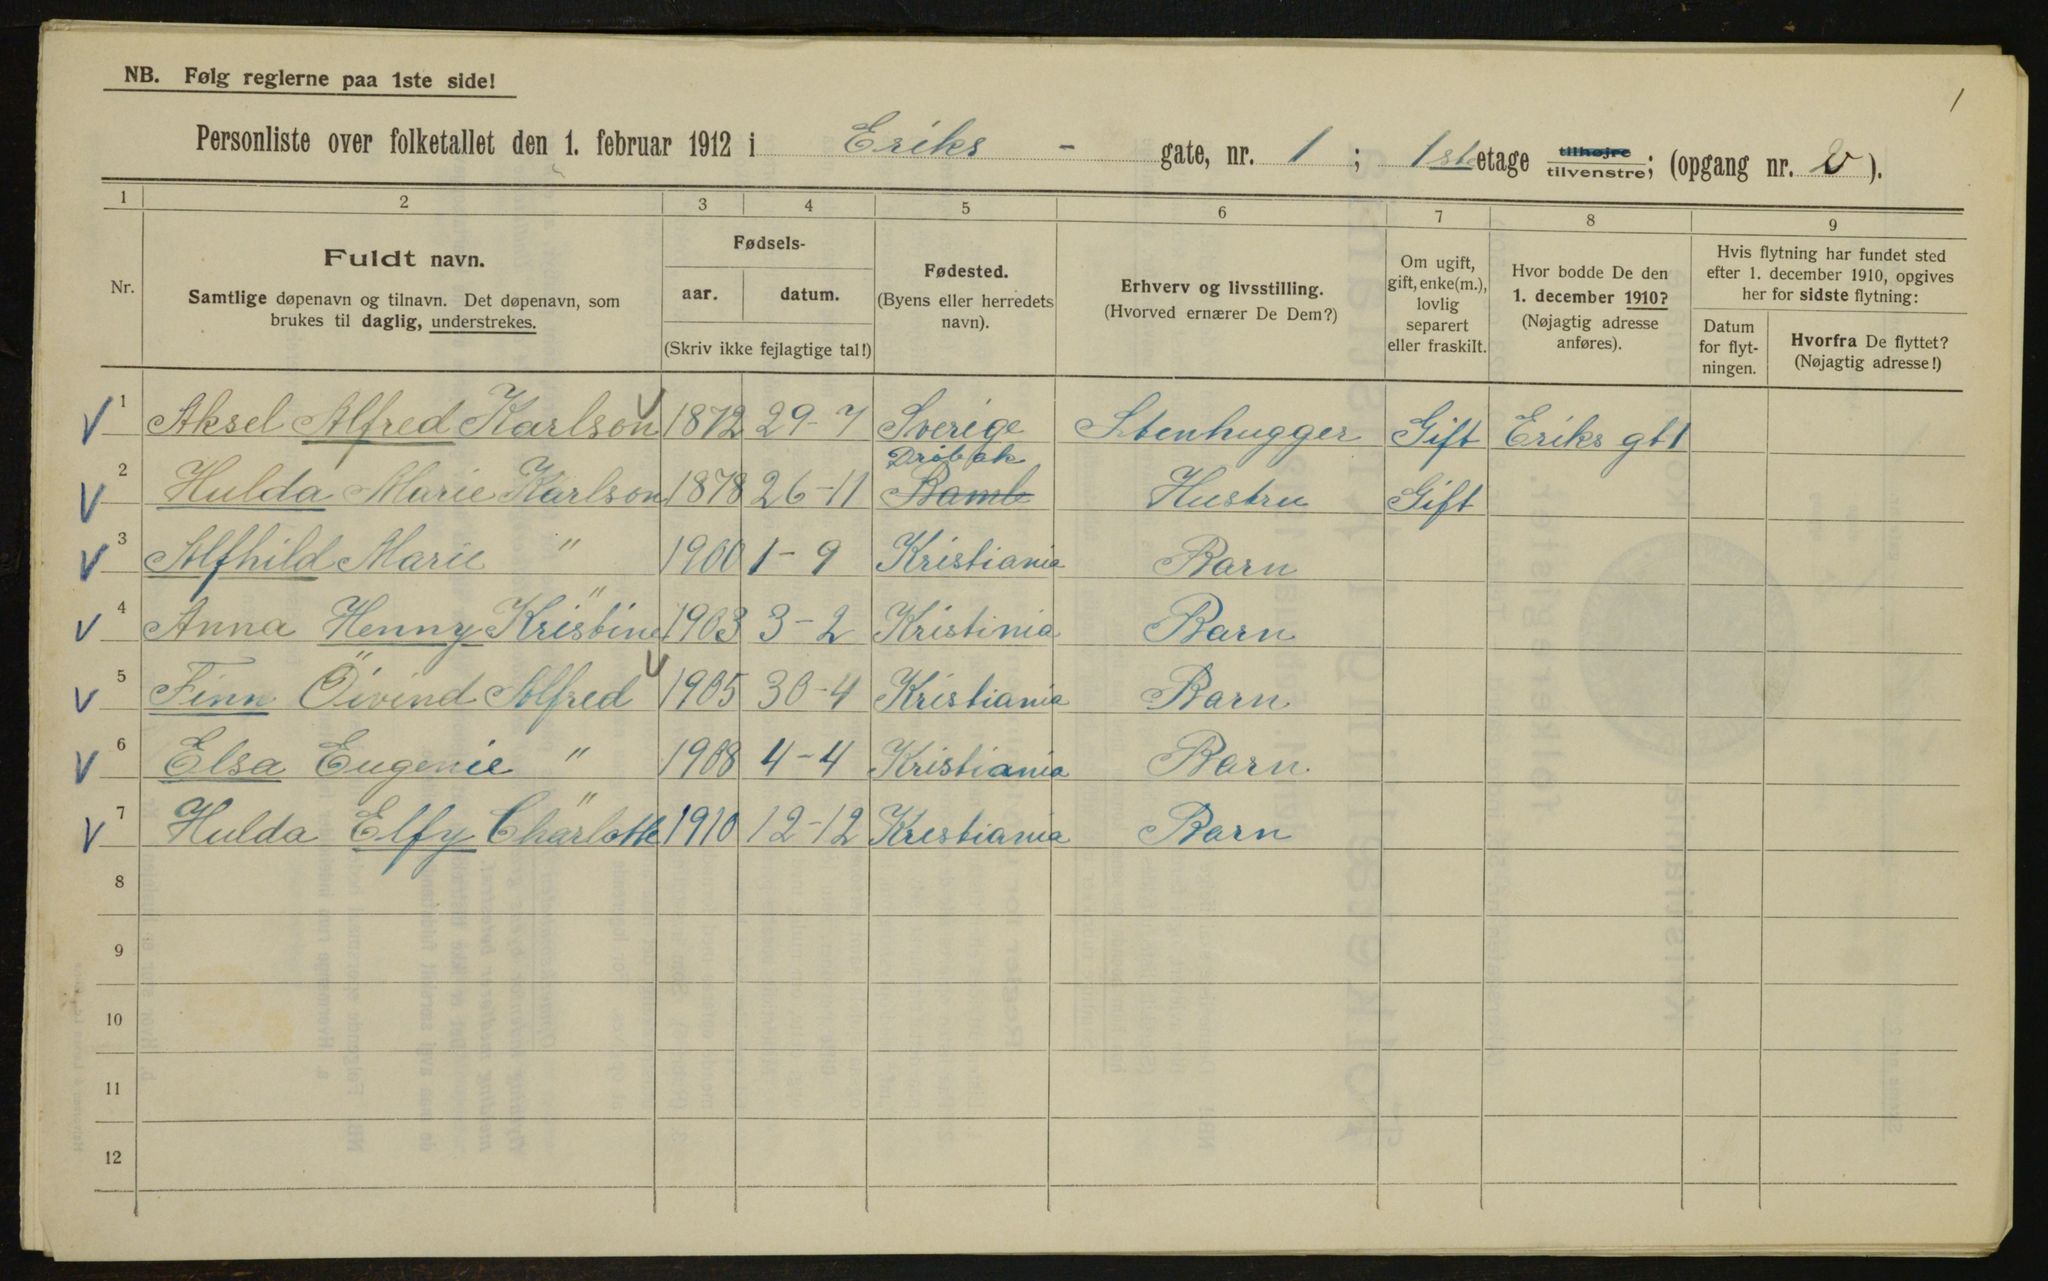 1
NB. Følg reglerne paa 1ste side!
Personliste over folketallet den 1. februar 1912 i Eriks - gate, nr. 1 ; 1ste etage tilhøjre tilvenstre; (opgang nr. V ).
1 2 3 4 5 6 7 8 9
Nr.
Fuldt navn.
Samtlige døpenavn og tilnavn. Det døpenavn, som
brukes til daglig, understrekes.
Fødsels-
aar. datum.
(Skriv ikke fejlagtige tal!)
Fødested.
(Byens eller herredets
navn).
Erhverv og livsstilling.
(Hvorved ernærer De Dem?)
Om ugift,
gift, enke(m.),
lovlig
separert
eller fraskilt.
Hvor bodde De den
1. december 1910?
(Nøjagtig adresse
anføres).
Hvis flytning har fundet sted
efter 1. december 1910, opgives
her for sidste flytning:
Datum
for flyt-
ningen.
Hvorfra De flyttet?
(Nøjagtig adresse!)
V 1 Aksel Alfred Karlson V 1872 29-7 Sverige Stenhugger Gift Eriks gt 1
Drøbak
V 2 Hulda Marie Karlson 1878 26-11 Bamle Hustru Gift
V 3 Alfhild Marie " 1900 1-9 Kristiania Barn
V 4 Anna Henny Kristine " 1903 3-2 Kristinia Barn
V 5 Finn Öivind Alfred " V 1905 30-4 Kristiania Barn
V 6 Elsa Eugenie " 1908 4-4 Kristiania Barn
V 7 Hulda Elfy Charlotte " 1910 12-12 Kristiania Barn
8
9
10
11
12